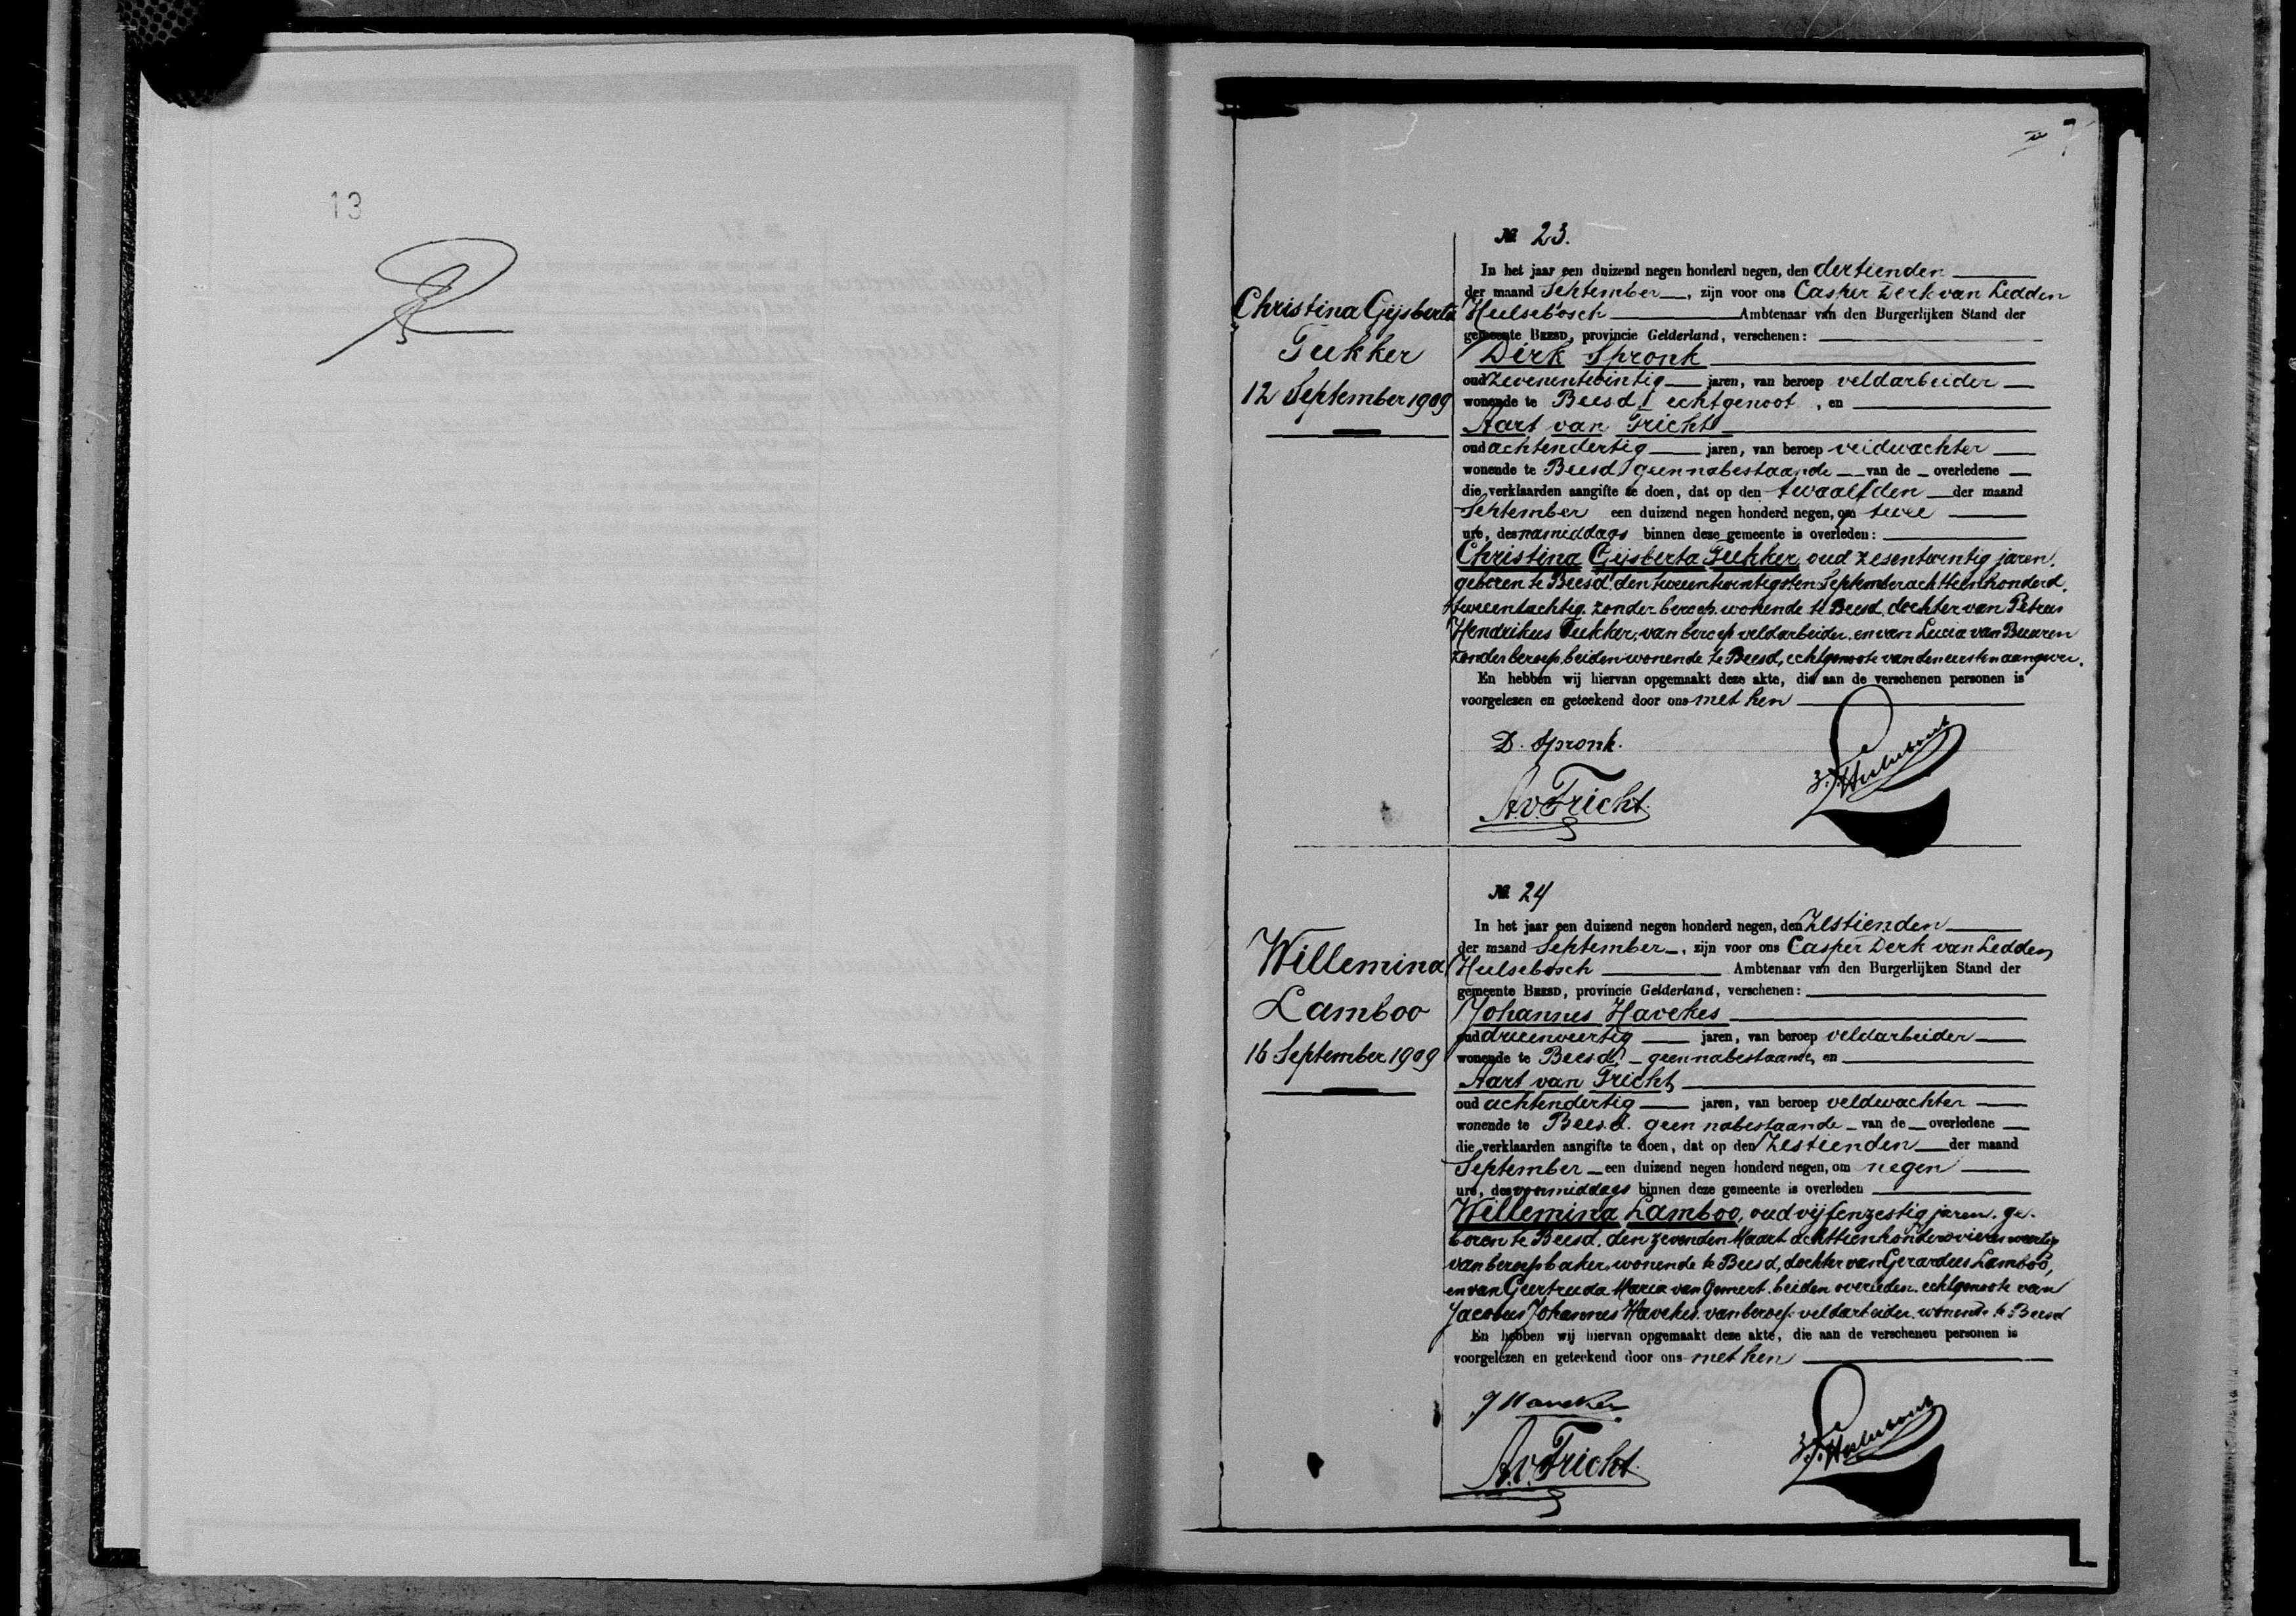 13
№ 23.
Christina Gijsberta
Tukker
12 September 1909
In het jaar een duizend negen honderd negen, den dertienden
der maand September, zijn voor ons Casper Derk van Ledden
Hulsebosch Ambtenaar van den Burgerlijken Stand der
gemeente BEESD, provincie Gelderland, verschenen:
Dirk Spronk
oud zevenentwintig jaren, van beroep veldarbeider
wonende te Beesd, echtgenoot, en
Aart van Tricht
oud achtendertig jaren, van beroep veldwachter
wonende te Beesd geen nabestaande van de overledene
die verklaarden aangifte te doen, dat op den twaalfden der maand
September een duizend negen honderd negen, om twee
ure, des namiddags binnen deze gemeente is overleden:
Christina Gijsberta Tukker, oud zesentwintig jaren,
geboren te Beesd den tweeentwintigsten September achttienhonderd
tweeentachtig, zonder beroep, wonende te Beesd, dochter van Petrus
Hendrikus Tukker, van beroep veldarbeider, en van Lucia van Buuren
zonder beroep, beiden wonende te Beesd, echtgenoote van den eersten aangever.
En hebben wij hiervan opgemaakt deze akte, die aan de verschenen personen is
voorgelezen en geteekend door ons met hen
D. Spronk.
A.v.Tricht.
№ 24
Willemina
Lamboo
16 September 1909
In het jaar een duizend negen honderd negen, den zestienden
der maand September, zijn voor ons Casper Derk van Ledden
Hulsebosch Ambtenaar van den Burgerlijken Stand der
gemeente BEESD, provincie Gelderland, verschenen:
Johannes Havekes
oud drieenveertig jaren, van beroep veldarbeider
wonende te Beesd, geen nabestaande, en
Aart van Tricht
oud achtendertig jaren, van beroep veldwachter
wonende te Beesd. geen nabestaande van de overledene
die verklaarden aangifte te doen, dat op den zestienden der maand
September een duizend negen honderd negen, om negen
ure, des voormiddags binnen deze gemeente is overleden
Willemina Lamboo, oud vijfenzestig jaren, ge-
boren te Beesd, den zevenden Maart achttienhonderdvierenveertig
van beroep baker, wonende te Beesd, dochter van Gerardus Lamboo,
en van Geertruda Maria van Gemert, beiden overleden, echtgenoote van
Jacobus Johannes Havekes, van beroep veldarbeider, wonende te Beesd
En hebben wij hiervan opgemaakt deze akte, die aan de verschenen personen is
voorgelezen en geteekend door ons met hen
J Havekes
A.v.Tricht.